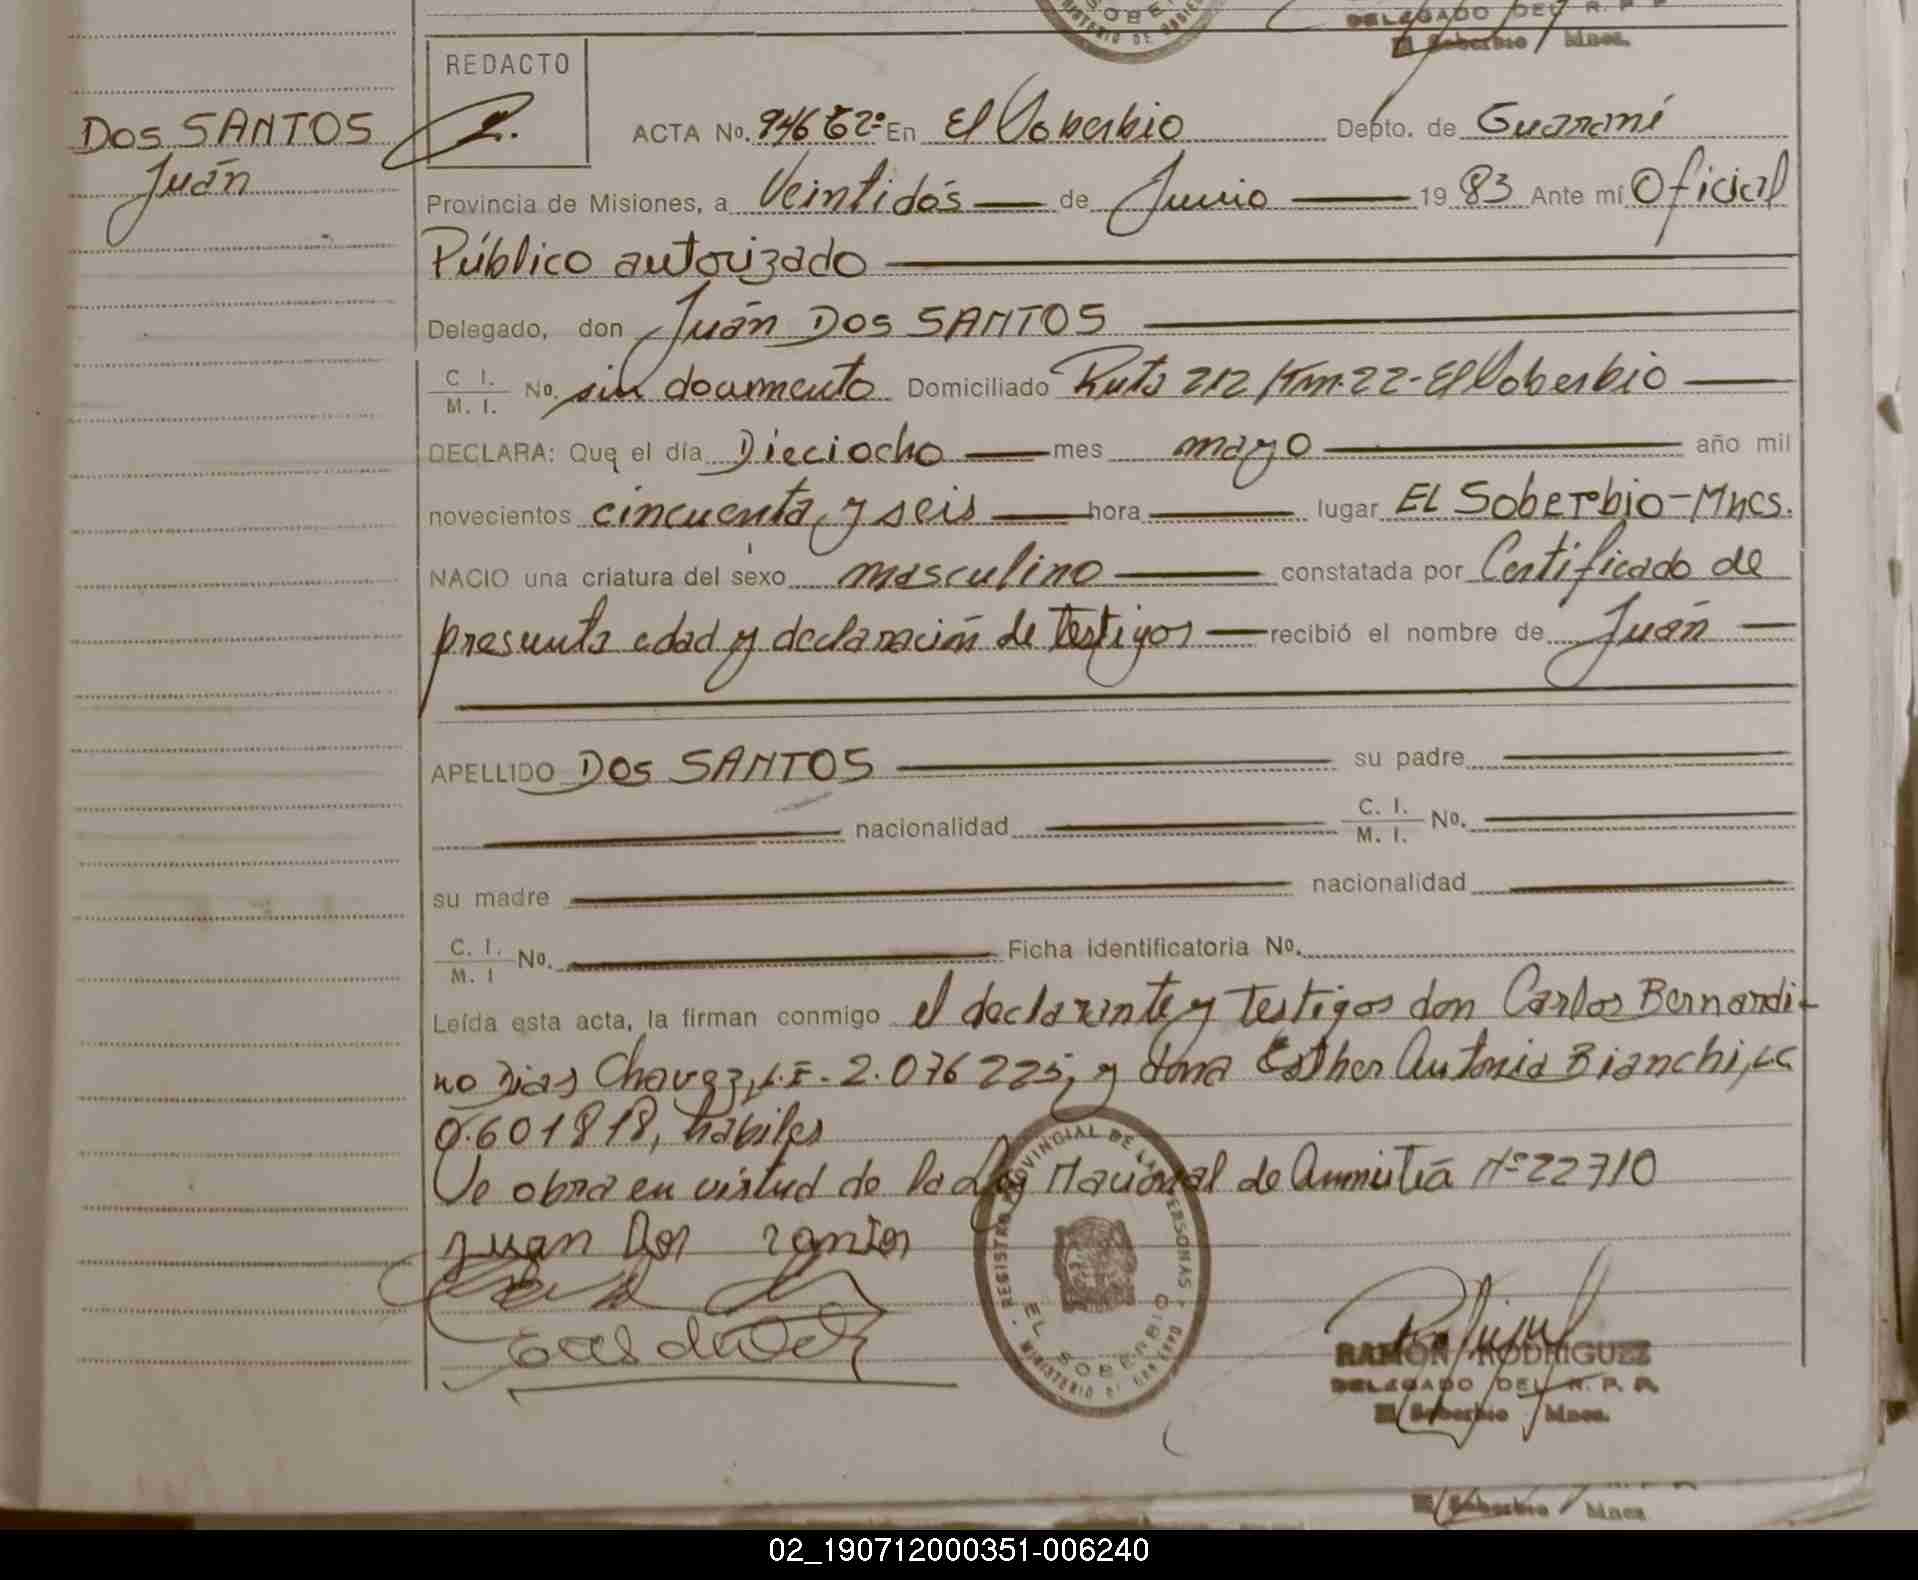 SOBE
MINISTERIO DE GOBIE
DELEGADO DEL R. P. P.
El Soberbio Mnes.
REDACTO
DOS SANTOS
Juán
ACTA No. 946 Tº2º En El Soberbio Depto. de Guaraní
Provincia de Misiones, a Veintidós de Junio 1983 Ante mí Oficial
Público autorizado
Delegado, don Juán DOS SANTOS
C. I. / M. I. No. sin documento Domiciliado Ruta 212 Km. 22 - El Soberbio
DECLARA: Que el día Dieciocho mes mayo año mil
novecientos cincuenta y seis hora lugar EL Soberbio - Mnes.
NACIO una criatura del sexo masculino constatada por Certificado de
presunta edad y declaración de testigos recibió el nombre de Juán
APELLIDO DOS SANTOS su padre
nacionalidad C. I. / M. I. No.
su madre nacionalidad
C. I. / M. I No. Ficha identificatoria No.
Leída esta acta, la firman conmigo el declarante y testigos don Carlos Bernardi-
no Dias Chavez, L.E. 2.076225, y dona Esther Antonia Bianchi, LC
0.601818, hábiles
Se obra en virtud de la Ley Nacional de Amnistiá Nº 22710
juan Dos santos
REGISTRO PROVINCIAL DE LAS PERSONAS
EL SOBERBIO
MINISTERIO DE GOBIERNO
RAMON RODRIGUEZ
DELEGADO DEL R. P. P.
El Soberbio Mnes.
El Soberbio Mnes.
02_190712000351-006240